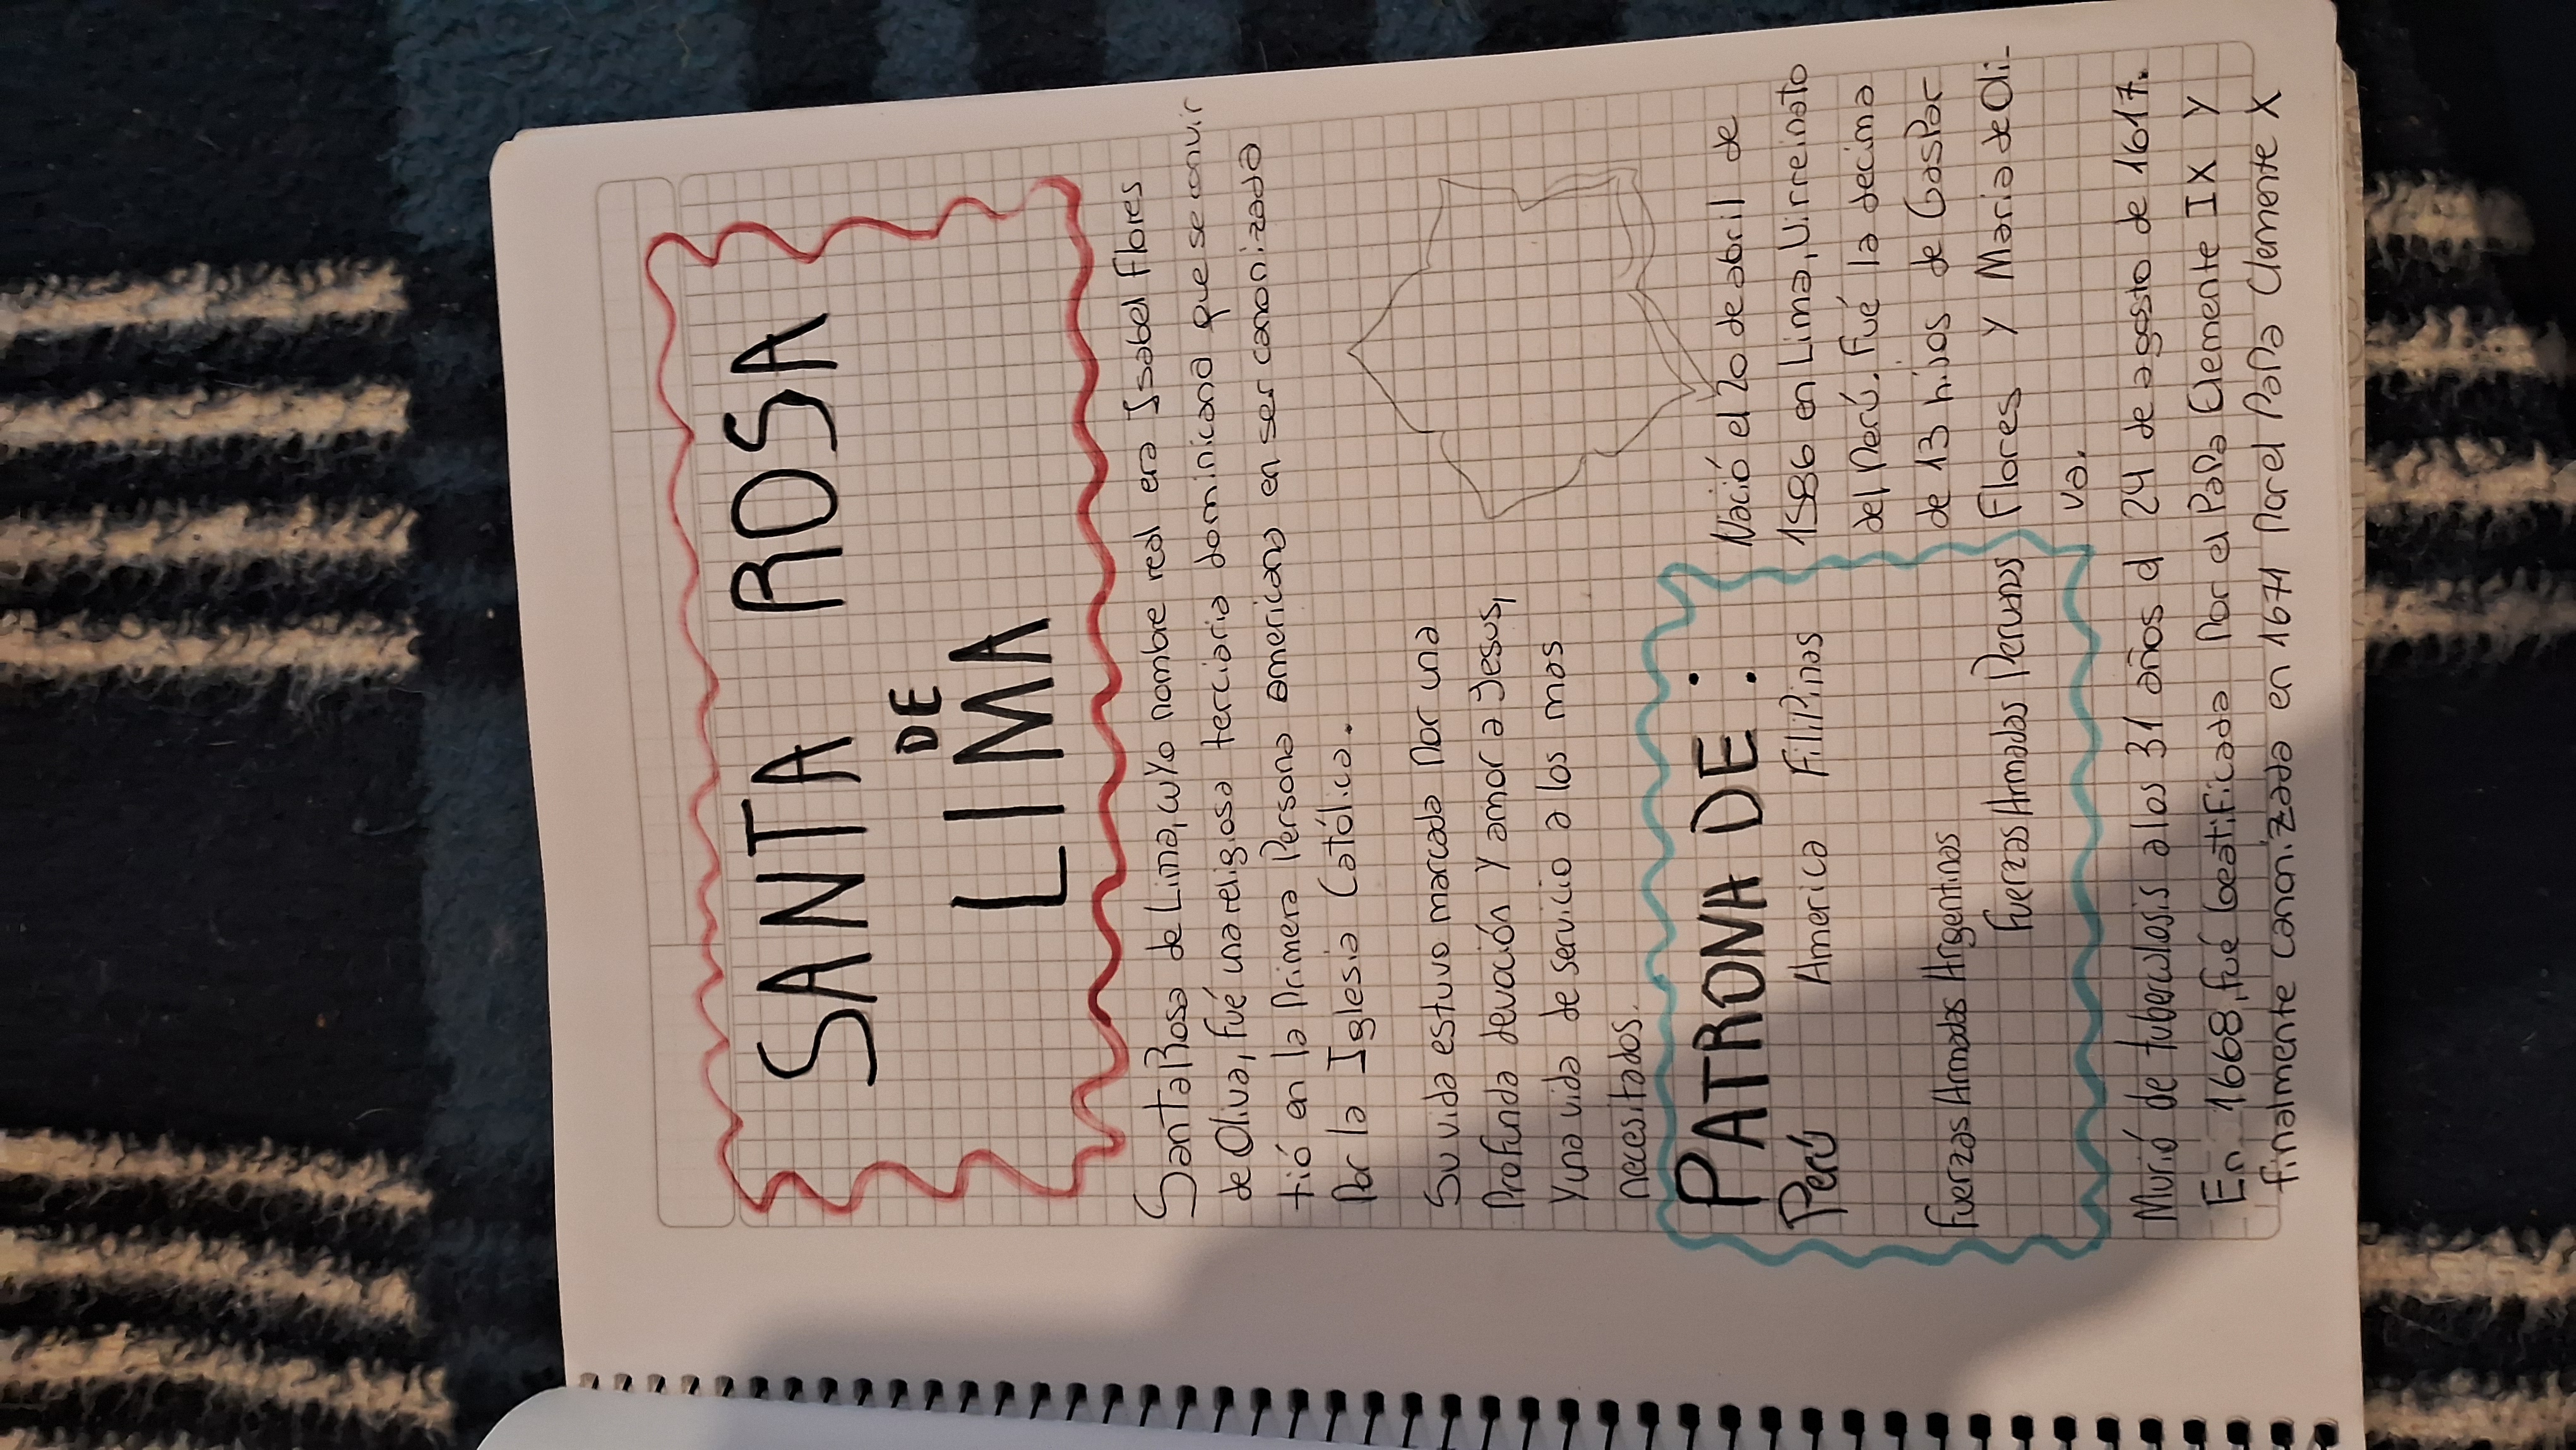 SANTA ROSA
DE
LIMA
Santa Rosa de Lima, cuyo nombre real era Isabel Flores
de Oliva, fué una religiosa terciaria dominicana que se convir
tió en la Primera Persona americana en ser canonizada
Por la Iglesia Católica.
Su vida estuvo marcada Por una
Profunda devoción y amor a Jesus,
y una vida de servicio a los mas
necesitados.
PATRONA DE :
Perú America FiliPinas
Fuerzas Armadas Argentinas
Fuerzas Armadas Peruanas
Nació el 20 de abril de
1586 en Lima, Virreinato
del Perú. Fué la decima
de 13 hijos de GasPar
Flores y Maria de Oli-
va.
Murió de tuberculosis a los 31 años el 24 de agosto de 1617.
En 1668, fué beatificada Por el PaPa Clemente IX y
finalmente canonizada en 1671 Por el PaPa Clemente X